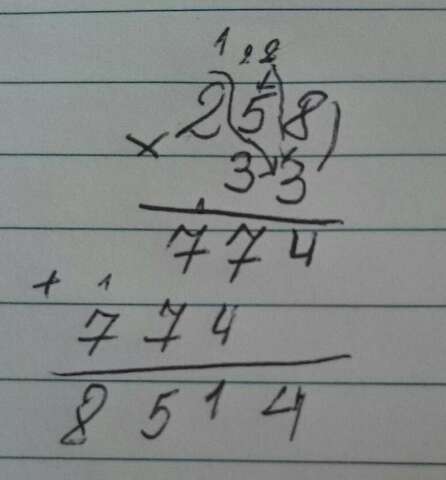 1 2 2
2 5 8
× 3 3
1
7 7 4
+ 1
7 7 4
8 5 1 4